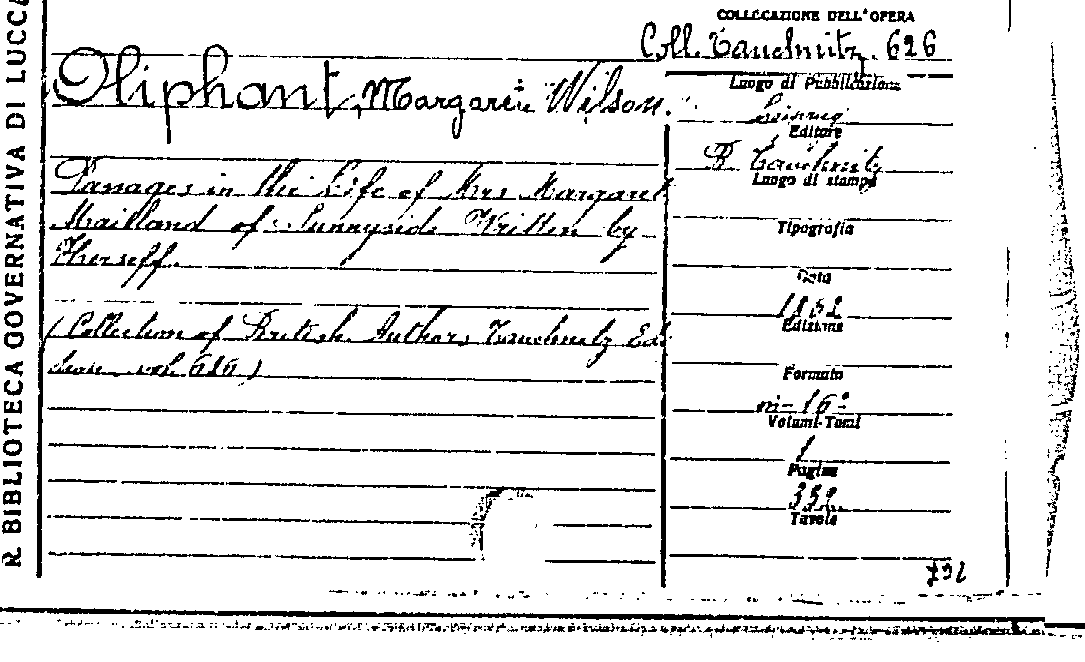 R BIBLIOTECA GOVERNATIVA DI LUCCA
COLLOCAZIONE DELL'OPERA
Coll. Tauchnitz. 626
Oliphant, Margaret Wilson.
Luogo di Pubblicazione
Editore
B Tauchnitz
Luogo di stampa
Passages in the Life of Mrs Margaret
Maitland of Sunnyside Written by
Herself.
Tipografia
Data
1862
Edizione
(Collection of British Authors Tauchnitz Edi
tion vol. 626)
Formato
in-16°
Volumi-Tomi
1
Pagine
Tavole